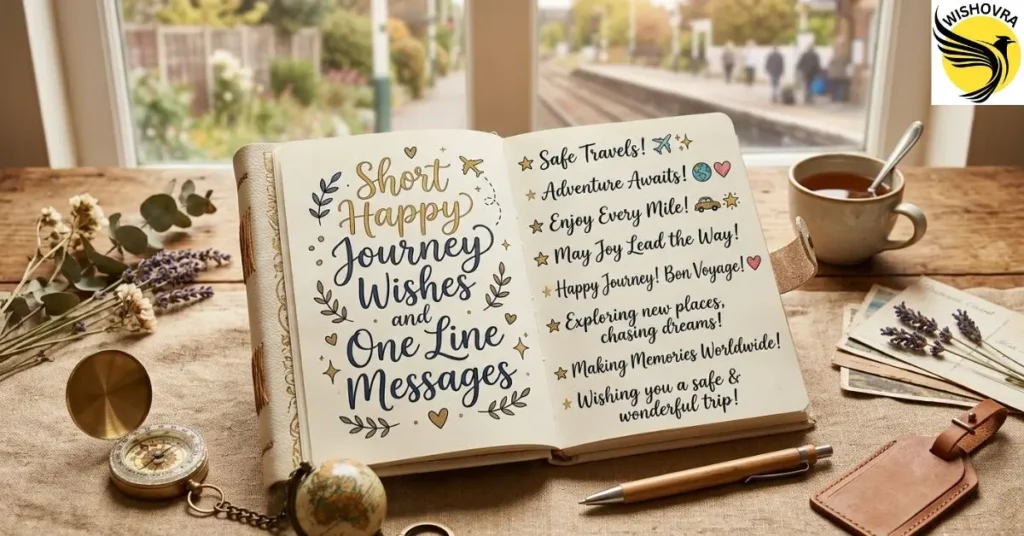 Short
Happy
Journey
Wishes
and
One Line
Messages
Safe Travels! ✈️✨
Adventure Awaits! 🌎❤️
Enjoy Every Mile! 🚗🌟
May Joy Lead the Way!
Happy Journey! Bon Voyage! ❤️
Exploring new places,
chasing dreams!
Making Memories Worldwide!
Wishing you a safe &
wonderful trip!
WISHOVRA